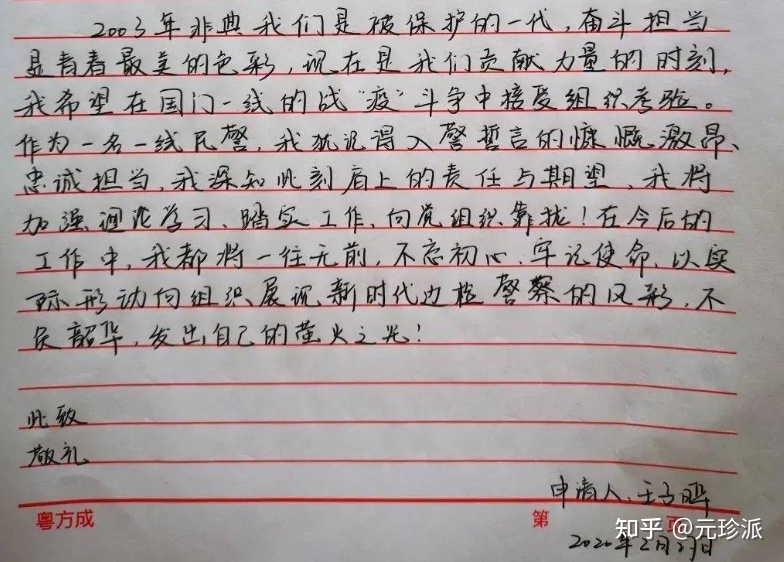 2003年非典我们是被保护的一代,奋斗担当
是青春最美的色彩,现在是我们贡献力量的时刻,
我希望在国门一线的战“疫”斗争中接受组织考验。
作为一名一线民警,我犹记得入警誓言的慷慨激昂、
忠诚担当,我深知此刻肩上的责任与期望、我将
加强理论学习、踏实工作、向党组织靠拢!在今后的
工作中,我都将一往无前,不忘初心、牢记使命,以实
际形动向组织展现新时代边检警察的风形,不
负韶华,发出自己的萤火之光!
此致
敬礼
申请人:王子晔
粤方成
第 页
2020年2月27日
知乎 @元珍派